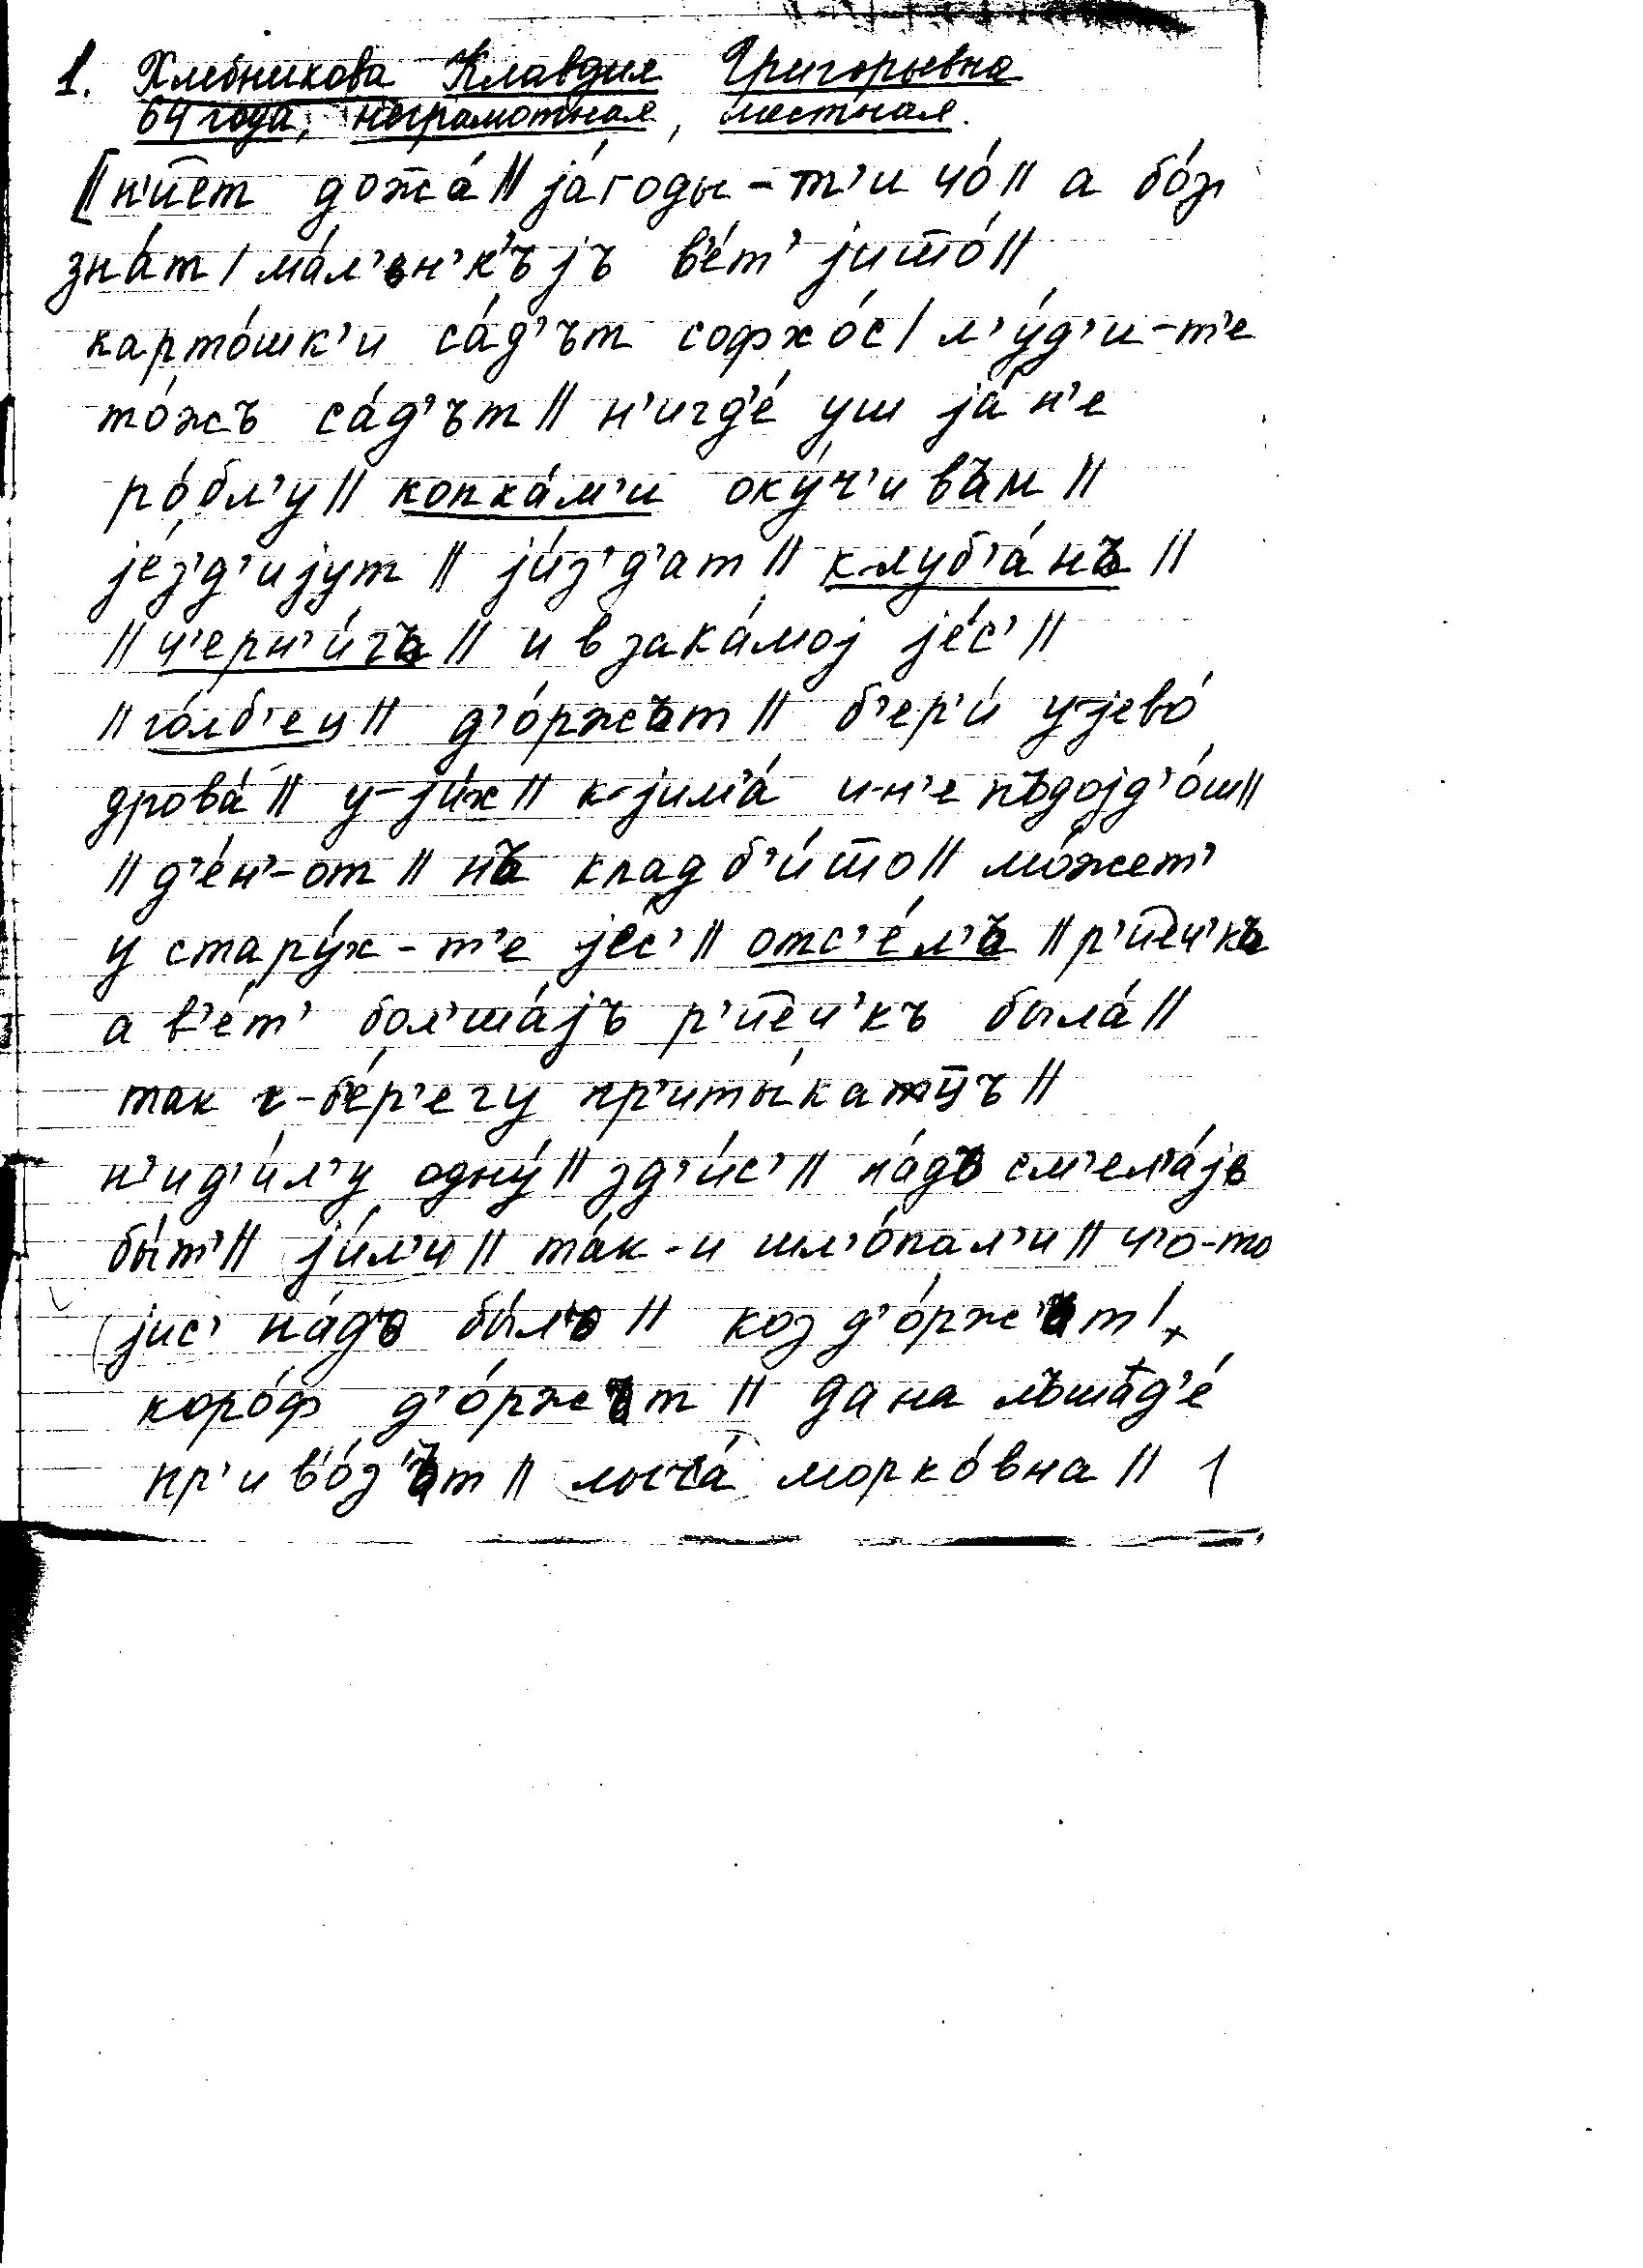 1. Хлебникова Клавдия Григорьевна
64 года, неграмотная, местная.
[‖ н'и͡ет дож̅а́ ‖ jа́годы-т'и чо́ ‖ а бо́γ
зна́т / ма́л'ьн'к'ъjъ в'е́т' jиш̅о́ ‖
карто́шк'и са́д'ът софхо́с / л'у́д'и-т'е
то́жъ са́д'ът ‖ н'игд'е́ уш jа́ н'е
ро́бл'у ‖ копка́м'и оку́ч'ивъм ‖
jе́з'д'иjут ‖ jи́з'д'ат ‖ клуб'а́нъ ‖
‖ ч'ерн'и́гъ ‖ и в зака́моj jе́с' ‖
‖ го́лб'ец ‖ д'о́ржът ‖ б'ер'и́ у-jево́
дрова́ ‖ у-jи́х ‖ к-jим'а́ и-н'е пъдоjд'о́ш ‖
‖ д'е́н'-от ‖ нъ кладб'и́ш̅о ‖ мо́жет'
у стару́х-т'е jе́с' ‖ отс'е́л'ъ ‖ р'и͡еч'къ
а в'е́т' бол'ша́jъ р'и͡еч'къ была́ ‖
так к-бе́р'егу пр'иты́кац̅ъ ‖
н'ид'и́л'у одну́ ‖ зд'и́с' ‖ на́дъ см'ел'а́jъ
бы́т' ‖ jи́л'и ‖ та́к-и шл'о́пал'и ‖ ч'о-то
jис' на́дъ бы́лъ ‖ коз д'о́ржът /
коро́ф д'о́ржът ‖ да на лъшад'е́
пр'иво́з'ът ‖ лыча́ морко́вна ‖